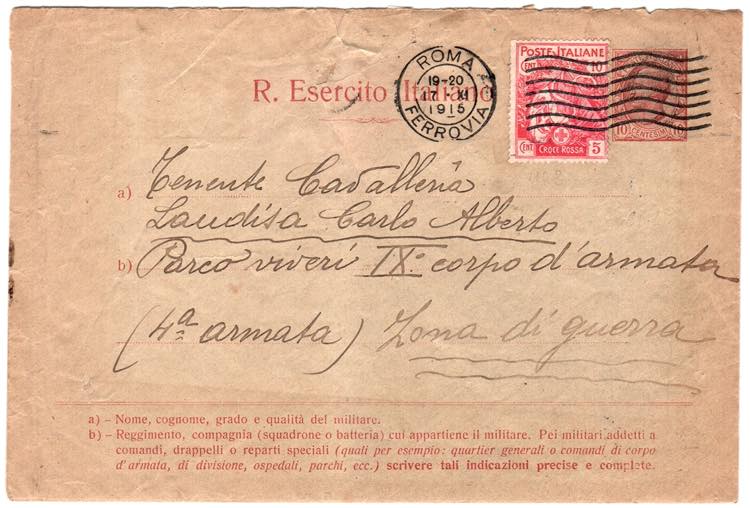 ROMA
FERROVIA
19-20
17 XI
1915
POSTE ITALIANE
CENT 10
CROCE ROSSA
CENT 5
10 CENTESIMI 10
R. Esercito Italiano
a) Tenente Cavalleria
Laudisa Carlo Alberto
b) Parco viveri IX° corpo d'armata
(4ª armata) Zona di guerra
a) – Nome, cognome, grado e qualità del militare.
b) – Reggimento, compagnia (squadrone o batteria) cui appartiene il militare. Pei militari addetti a
comandi, drappelli o reparti speciali (quali per esempio: quartier generali o comandi di corpo
d'armata, di divisione, ospedali, parchi, ecc.) scrivere tali indicazioni precise e complete.